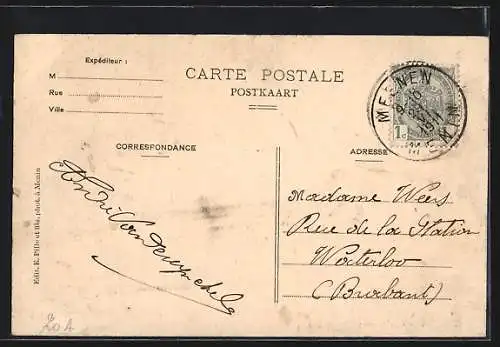 Expéditeur :
M
Rue
Ville
CARTE POSTALE
POSTKAART
MEENEN
1911
MENIN
1c
CORRESPONDANCE
ADRESSE
André
Madame Weers
Rue de la Station
Waterloo
(Brabant)
Edit. E. Pille et fils, phot. à Menin